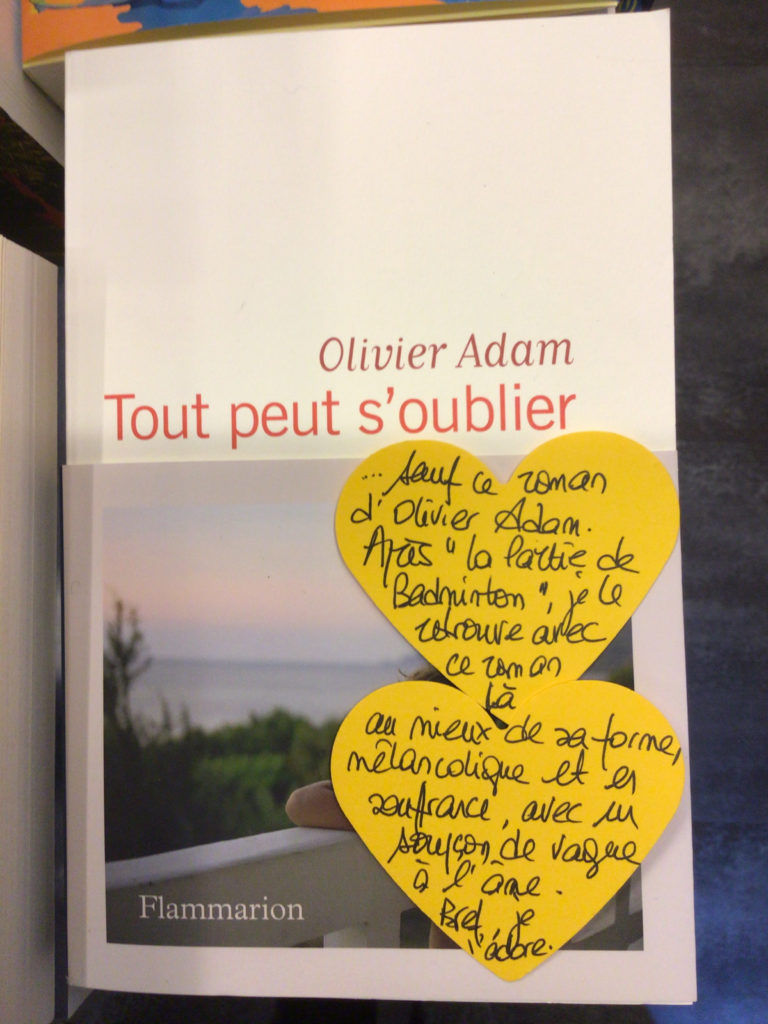 Olivier Adam
Tout peut s'oublier
... sauf ce roman
d'Olivier Adam.
Après "la Partie de
Badminton", je le
retrouve avec
ce roman
là
au mieux de sa forme,
mélancolique et en
souffrance, avec un
soupçon de vague
à l'âme.
Bref, je
l'adore.
Flammarion